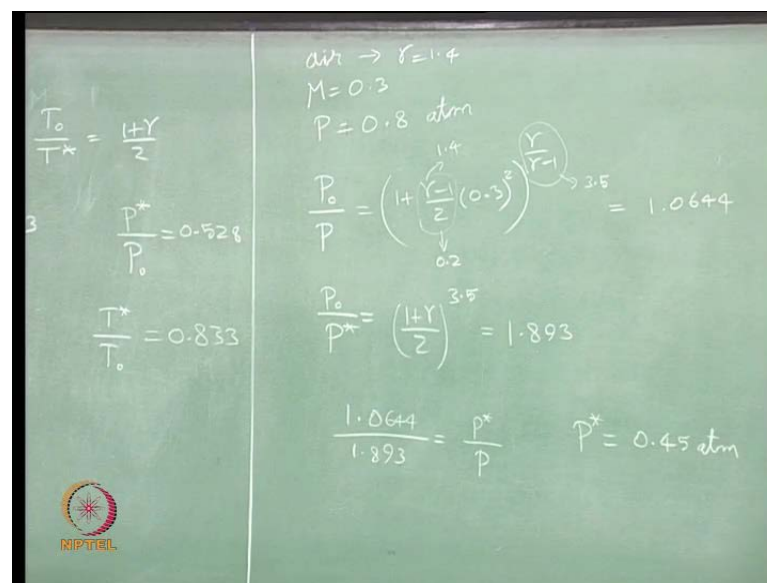 T₀/T* = (1+γ)/2
3
P*/P₀ = 0.528
T*/T₀ = 0.833
air → γ=1.4
M = 0.3
P = 0.8 atm
1.4
P₀/P = (1 + (γ-1)/2 (0.3)²)^(γ/(γ-1)) = 1.0644
3.5
0.2
P₀/P* = ((1+γ)/2)^3.5 = 1.893
1.0644/1.893 = P*/P P* = 0.45 atm
NPTEL